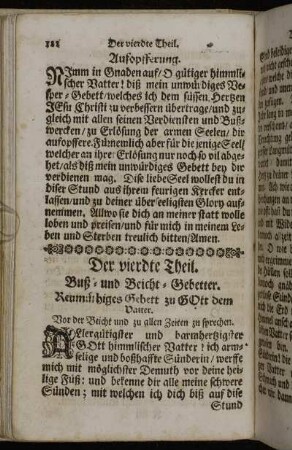 Der vierdte Theil.
Aufopfferung.
NImm in Gnaden auf/ O gütiger himmli-
scher Vatter! diß mein unwürdiges Ve-
sper-Gebett/ welches ich dem süssen Hertzen
JEsu Christi zu verbessern übertrage/ und zu-
gleich mit allen seinen Verdiensten und Buß-
wercken/ zu Erlösung der armen Seelen/ dir
aufopffere. Fürnemlich aber für die jenige Seel/
welcher an ihrer Erlösung nur noch so vil abge-
het/ als diß mein unwürdiges Gebett bey dir
verdienen mag. Dise liebe Seel wollest du in
diser Stund aus ihrem feurigen Kercker ent-
lassen/ und zu deiner überseeligsten Glory auf-
nemmen. Allwo sie dich an meiner statt wolle
loben und preisen/ und für mich in meinem Le-
ben und Sterben treulich bitten/ Amen.
Der vierdte Theil.
Buß- und Beicht-Gebetter.
Reumüthiges Gebett zu GOtt dem
Vatter.
Vor der Beicht und zu allen Zeiten zu sprechen.
ALlergütigster und barmhertzigster
GOtt himmlischer Vatter! ich arm-
selige und boßhaffte Sünderin/ werffe
mich mit möglichster Demuth vor deine hei-
lige Füß: und bekenne dir alle meine schwere
Sünden; mit welchen ich dich biß auf dise
Stund